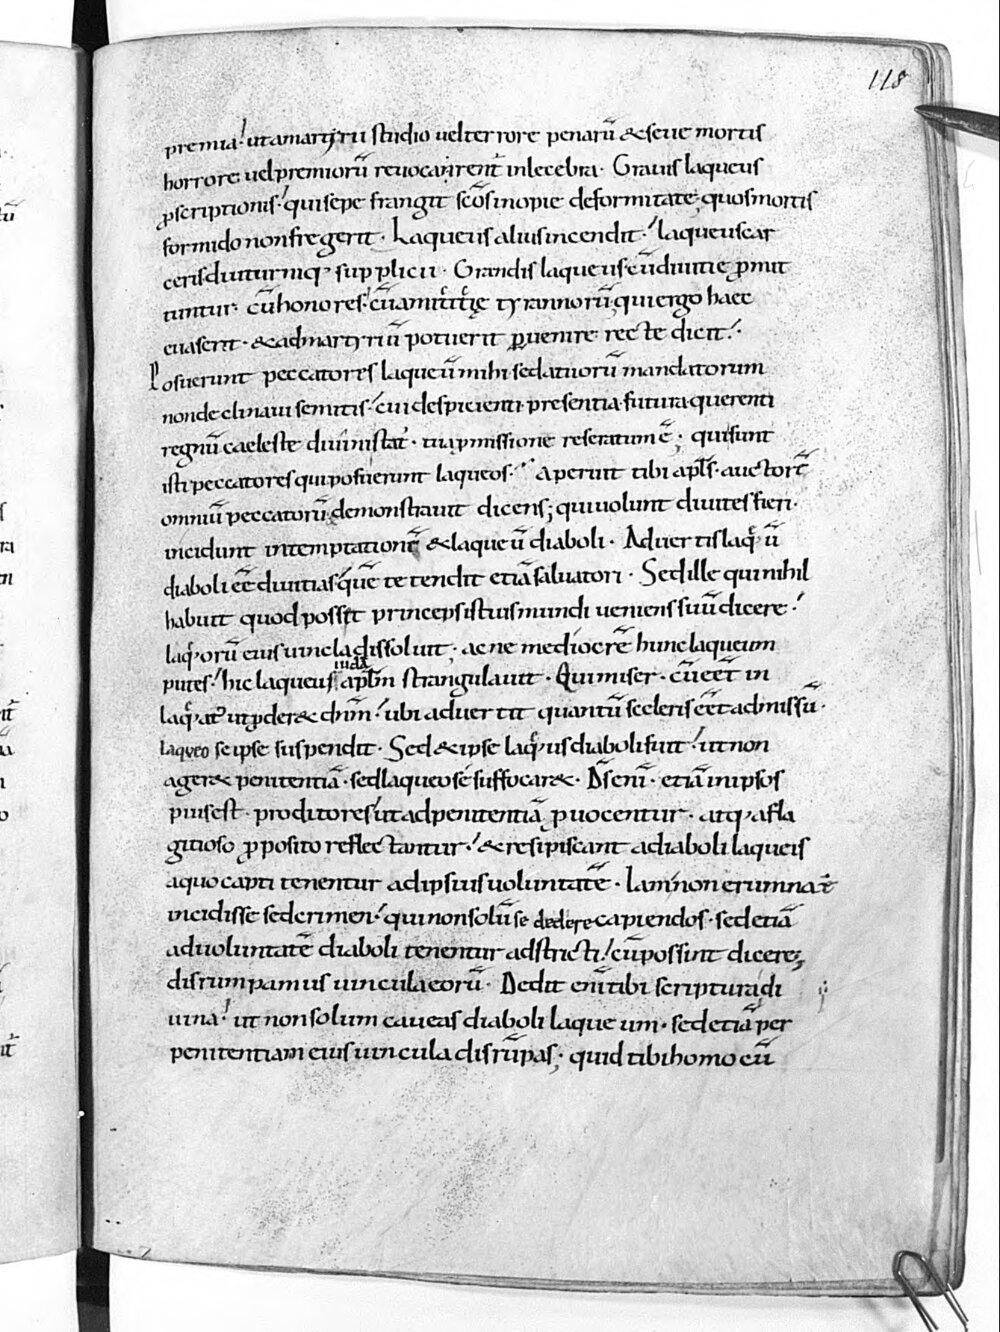 118
premia! ut a martyrii studio vel terrore penarū & seve mortis
horrore vel premiorū revocarirent̄ inlecebra. Gravis laqueus
ꝓscriptionis! qui sepe frangit sc̄os inopie deformitate; quos mortis
formido non fregerit. Laqueus alius incendit! laqueus car
ceris diuturniq; supplicii. Grandis laqueus cū divitie ꝓmit
tuntur. cū honores! cū amicitię tyrannorū, qui ergo haec
evaserit. & ad martyriū potuerit ꝑvenire recte dicit!
Posuerunt peccatores laqueū mihi sed a tuorū mandatorum
non declinavi semitis! cui despicienti presentia futura querenti
regnū caeleste divinis tat̄. tua ꝓmissione reseratum ē; qui sunt
isti peccatores qui posuerunt laqueos. Aperuit tibi apl̄s. auctorē
omniū peccatorū demonstravit dicens; qui volunt divites fieri.
incidunt in temptationē & laqueū diaboli. Advertis laq̄ū
diaboli eē divitias quē tetendit etiā salvatori. Sed ille qui nihil
habuit quod possit princeps istius mundi veniens suū dicere!
laq̄orū eius vincla dissolvit. ac ne mediocrē hunc laqueum
putes! hic laqueus iuda apl̄m strangulavit. Qui miser. cū eēt in
laq̄at; ut ꝓder& dn̄m! ubi advertit quantū sceleris eēt admissū.
laqueo se ipse suspendit. Sed & ipse laq̄us diaboli fuit! ut non
ager& penitentiā. sed laqueo sē suffocar&. Dn̄s eni. etiā in ipsos
pius est. proditores! ut ad penitentiā ꝓvocentur. atq; a fla
gitioso ꝓposito reflectantur! & resipiscant a diaboli laqueis
a quo capti tenentur ad ipsius voluntatē. Iam non erumna ē
incidisse sed crimen! qui non solū se dedere capiendos. sed etiā
ad voluntatē diaboli tenentur adstricti! cū possint dicere;
disrumpamus vincula eorū. Dedit eni tibi scriptura di
vina! ut non solum caveas diaboli laqueum. sed etiā per
penitentiam eius vincula disrūpas; quid tibi homo cū